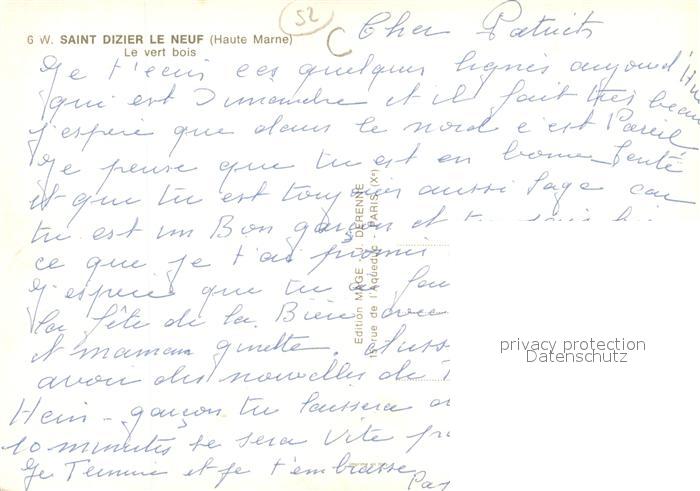 52
6 W. SAINT DIZIER LE NEUF (Haute Marne)
Le vert bois
Cher Patrick
Je t'ecris ces quelques lignes aujourd'hui
qui est Dimanche et il fait très beau
j'espère que dans le nord c'est Pareil
Je pense que tu est en bonne Senté
et que tu est toujours aussi Sage car
tu est un Bon garçon et tu sais
ce que je t'ai promis
J'espère que tu
la fête de la Bière avec
et maman ginette. Auss
avoir des nouvelles de
Hein - garçon tu laissera
10 minutes se sera vite
Je Termine et je t'embrasse
Edition MAGE - J. DERENNE
rue de l'Aqueduc - PARIS (Xᵉ)
privacy protection
Datenschutz